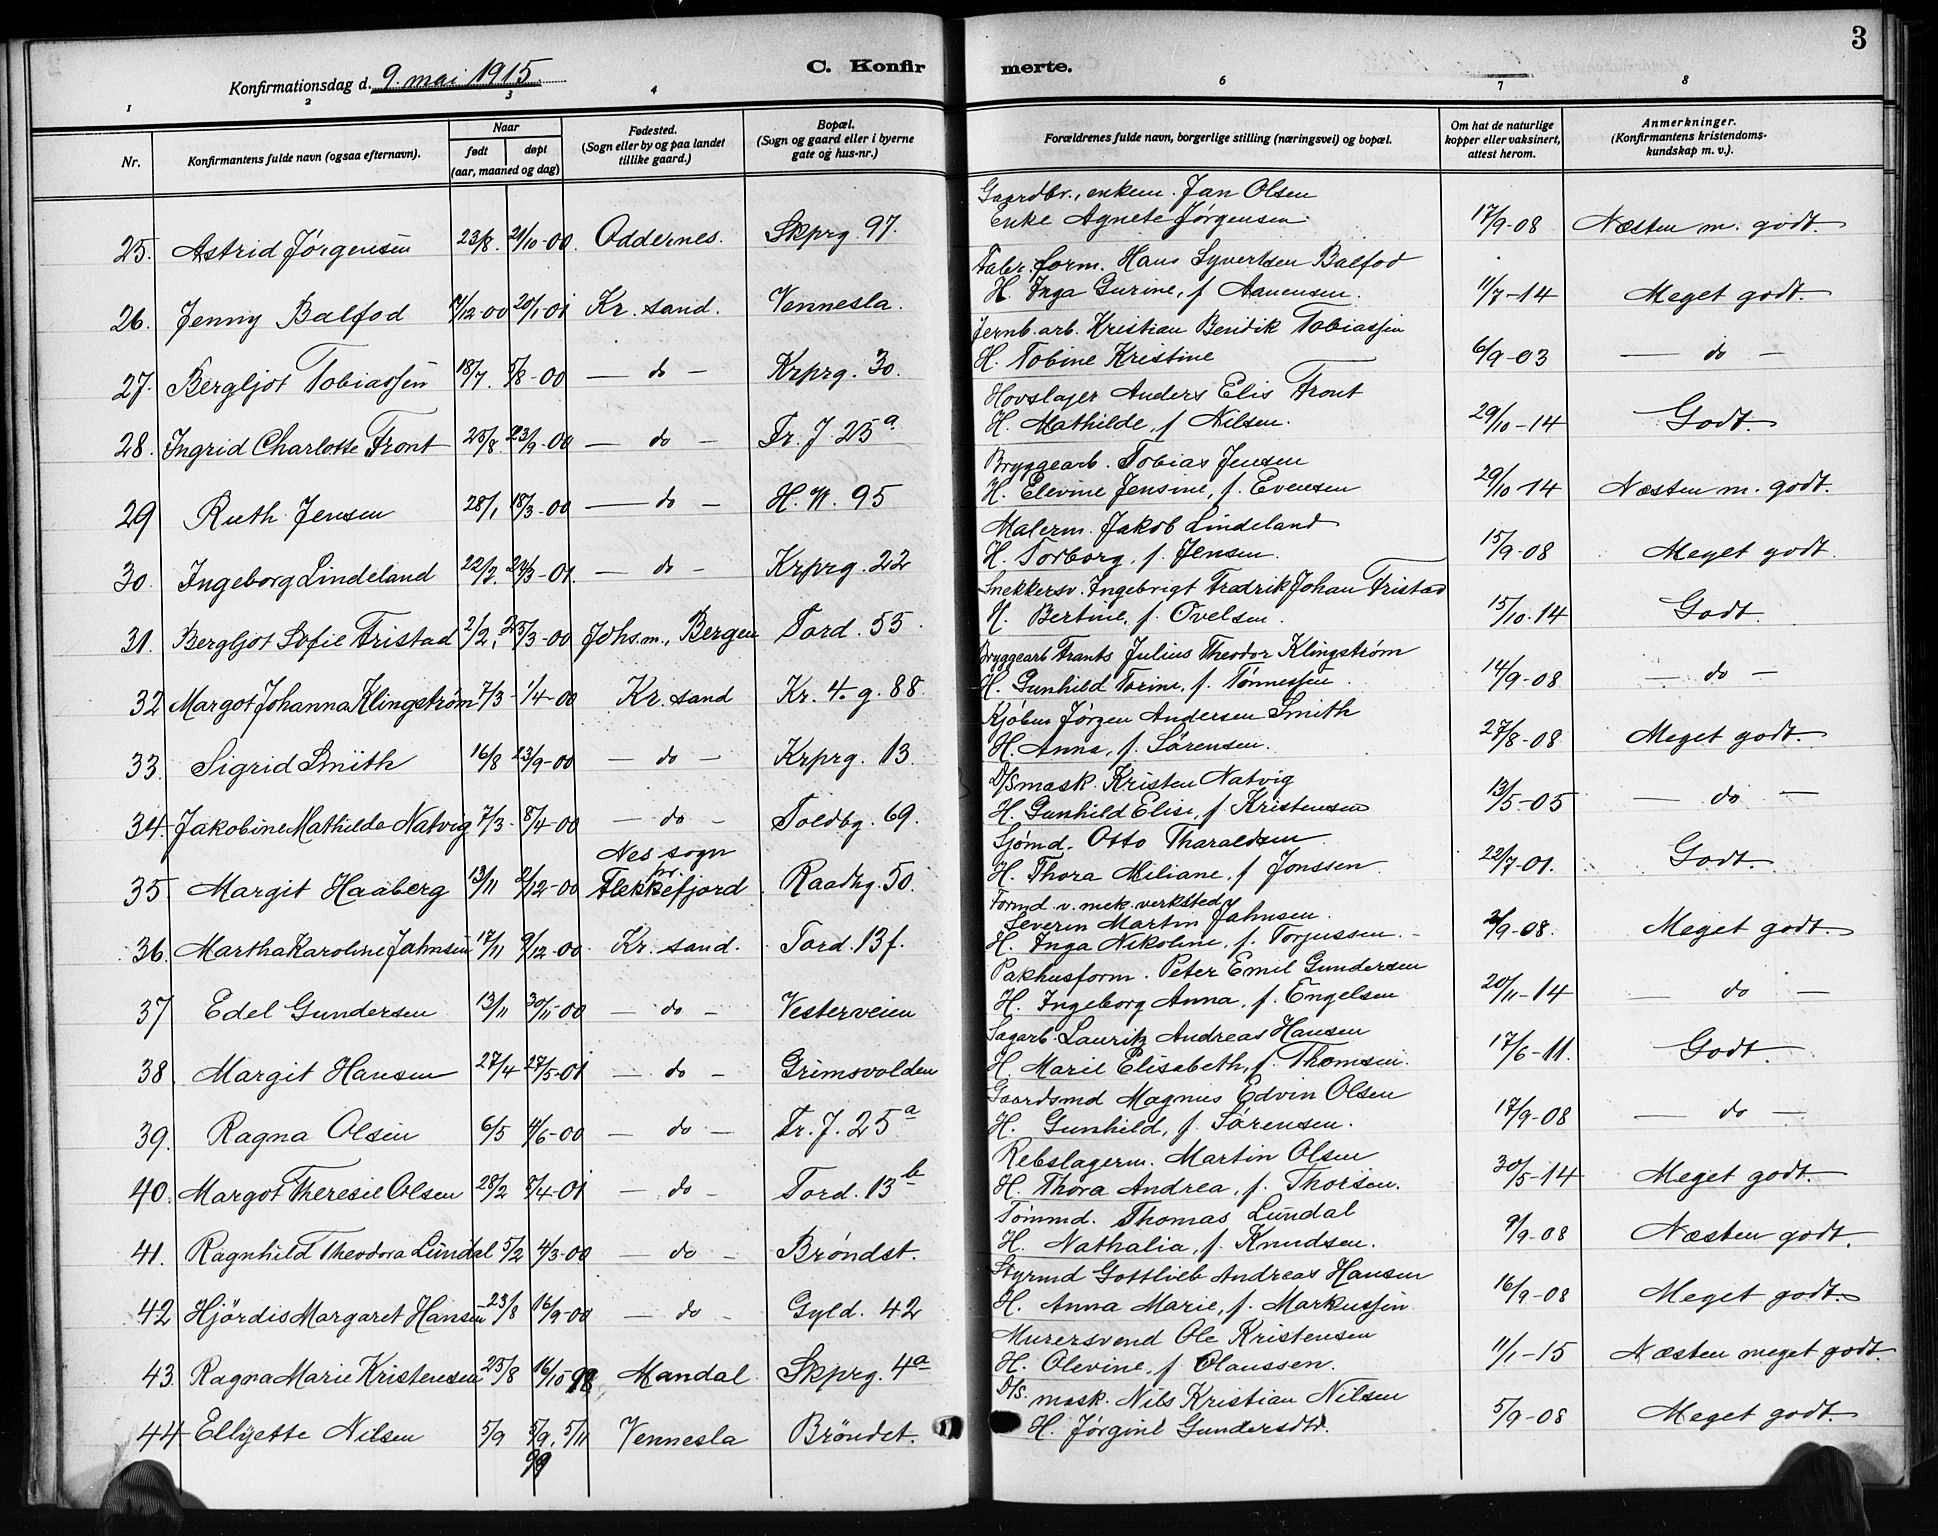 3
Konfirmationsdag d. 9. mai 1915.
C. Konfirmerte.
1 2 3 4 6 7 8
Nr. Konfirmantens fulde navn (ogsaa efternavn). Naar født døpt (aar, maaned og dag) Fødested. (Sogn eller by og paa landet tillike gaard.) Bopæl. (Sogn og gaard eller i byerne gate og hus-nr.) Forældrenes fulde navn, borgerlige stilling (næringsvei) og bopæl. Om hat de naturlige kopper eller vaksinert, attest herom. Anmerkninger. (Konfirmantens kristendoms-kundskap m. v.).
Gaardbr., enkem. Jan Olsen
25. Astrid Jørgensen 23/8. 21/10-00 Oddernes. Skprg. 97. Enke Agnete Jørgensen. 17/9-08 Næsten m. godt.
Fabr. form. Hans Syvertsen Balfod
26. Jenny Balfod /12-00 20/1-01 Kr. sand. Vennesla. H. Inga Gurine, f. Aanensen. 11/7-14 Meget godt.
Jernb. arb. Kristian Bendik Tobiassen
27. Bergljot Tobiassen 18/7. 5/8-00 — do — Krprg. 30. H. Tobine Kristine 6/9-03 — do —
Hovslager Anders Elis Front
28. Ingrid Charlotte Front 25/8. 23/9-00 — do — Fr. J 25a H. Mathilde, f Nilsen. 29/10-14 Godt.
Bryggearb. Tobias Jensen
29 Ruth Jensen 28/1 18/3-00 — do — H. W. 95 H. Elevine Jensine, f. Evensen 29/10-14 Næsten m. godt.
Malerm. Jakob Lindeland
30. Ingeborg Lindeland 22/2. 24/3-01. — do — Krprg. 22 H. Torborg, f. Jensen. 15/9-08 Meget godt
Snekkersv. Ingebrigt Fredrik Johan Fristad
31. Bergljot Sofie Fristad 2/2, 25/3-00 Johs.m., Bergen Tord. 55. H. Bertine, f. Ovelsen. 15/10.14 Godt.
Bryggearb Frants Julius Theodor Klingstrøm
32 Margot Johanna Klingstrøm 7/3- 1/4-00 Kr. sand Kr. 4. g. 88. H. Gunhild Torine, f. Tønnessen. 14/9-08 — do —
Kjøbm Jørgen Andersen Smith
33. Sigrid Smith 16/8 23/9-00 — do — Krprg. 13. H. Anna, f. Sørensen. 27/8-08 Meget godt.
D/S mask. Kristen Natvig
34. Jakobine Mathilde Natvig 7/3- 8/4-00 — do — Toldbg. 69. H. Gunhild Elise, f Kristensen 13/5-05 — do —
Sjømd. Otto Tharaldsen
35. Margit Haaberg 13/11 2/12-00 Nes sogn pr. Flekkefjord Raadhg. 50. H. Thora Miliane, f Jonssen. 22/7-01. Godt.
Formd. v. mek. verksted
Severin Martin Jahnsen.
36. Martha Karoline Jahnsen 17/11 9/12-00 Kr. sand. Tord. 13f. H. Inga Nikoline, f. Torjussen. /9-08. Meget godt.
Pakhusform. Peter Emil Gundersen
37 Edel Gundersen 13/11 30/11-00 — do — Vesterveien H. Ingeborg Anna, f. Engelsen 20/11-14 — do —
Sagarb. Lauritz Andreas Hansen
38. Margit Hansen 27/4 27/5-01 — do — Grimsvolden H. Marie Elisabeth, f. Thomsen. 17/6-11. Godt.
Gaardsmd Magnus Edvin Olsen
39. Ragna Olsen 6/5 4/6-00 — do — Fr. J. 25a H. Gunhild, f. Sørensen. 17/9-08 — do —
Rebslagerm. Martin Olsen
40. Margot Theresie Olsen 28/2 8/4-01 — do — Tord. 13b H. Thora Andrea, f. Thorsen. 30/5-14 Meget godt.
Tømmd. Thomas Lundal
41. Ragnhild Theodora Lundal 5/2 4/3-00 — do — Brøndst. H. Nathalia, f. Knudsen. 9/9-08 Næsten godt.
Styrmd Gottlieb Andreas Hansen
42 Hjørdis Margaret Hansen 23/8 16/9-00 — do Gyld. 42 H. Anna Marie, f. Markussen 16/9-08 Meget godt.
Murersvend Ole Kristensen
43. Ragna Marie Kristensen 25/8 16/10 98 Mandal Skprg. 4a H. Olevine, f Olaussen. 11/1-15 Næsten meget godt.
D/S. mask. Nils Kristian Nilsen
44 Ellyette Nilsen 5/9 5/9. 5/11 99 Vennesla Brøndst. H. Jørgine Gundersdtr. 5/9-08 Meget godt.